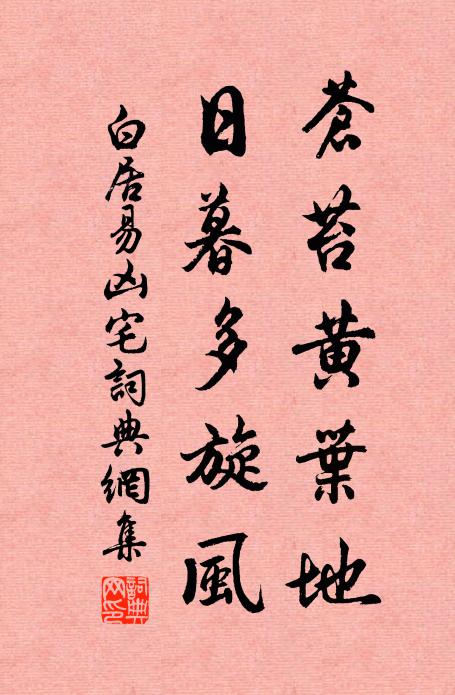 蒼苔黃葉地
日暮多旋風
白居易凶宅詞典網集
詞典网印